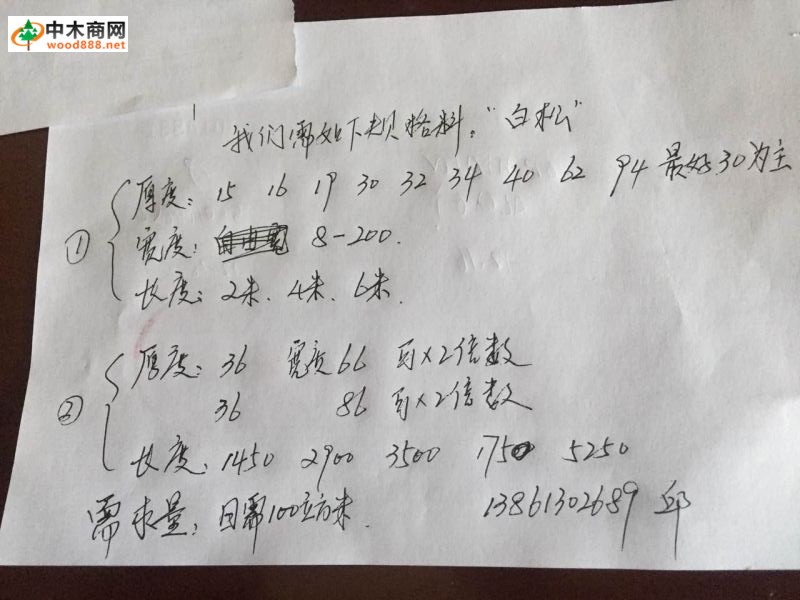 中木商网
wood888.net
我们需如下规格料:"白松"
① 厚度: 15 16 19 30 32 34 40 62 94 最好30为主
宽度: 8-200.
长度: 2米. 4米. 6米.
② 厚度: 36 宽度66 可×2倍数
36 86 可×2倍数
长度: 1450 2900 3500 1750 5250
需求量: 日需100立方米. 13861302689 邱